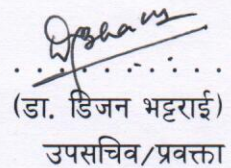 (डा. डिजन भट्टराई)
उपसचिव/प्रवक्ता